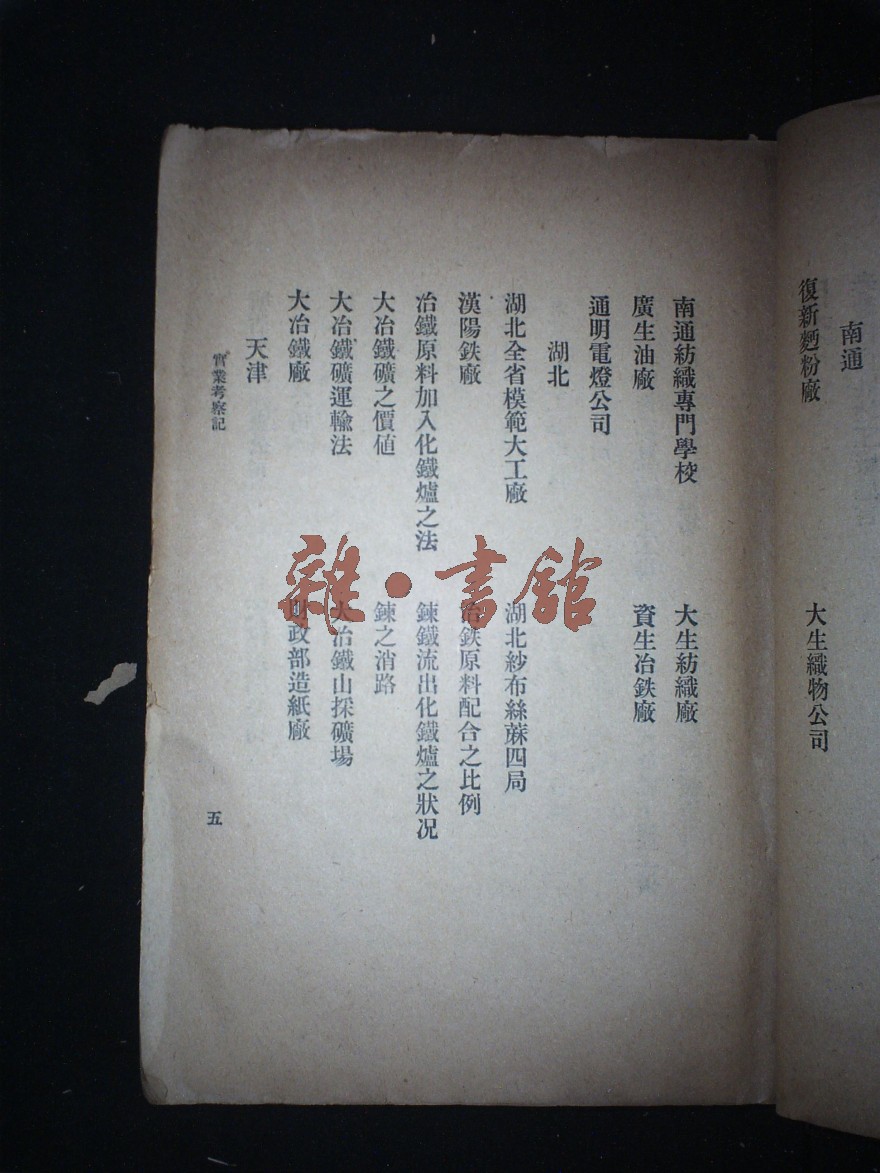 南通
復新麪粉廠　大生織物公司
南通紡織專門學校　大生紡織廠
廣生油廠　資生冶鉄廠
通明電燈公司
湖北
湖北全省模範大工廠　湖北紗布絲蔴四局
漢陽鉄廠　冶鉄原料配合之比例
冶鐵原料加入化鐵爐之法　鍊鐵流出化鐵爐之狀况
大冶鐵礦之價値　鍊之消路
大冶鐵礦運輸法　大冶鐵山採礦場
大冶鐵廠　財政部造紙廠
天津
實業考察記　五
雜·書館